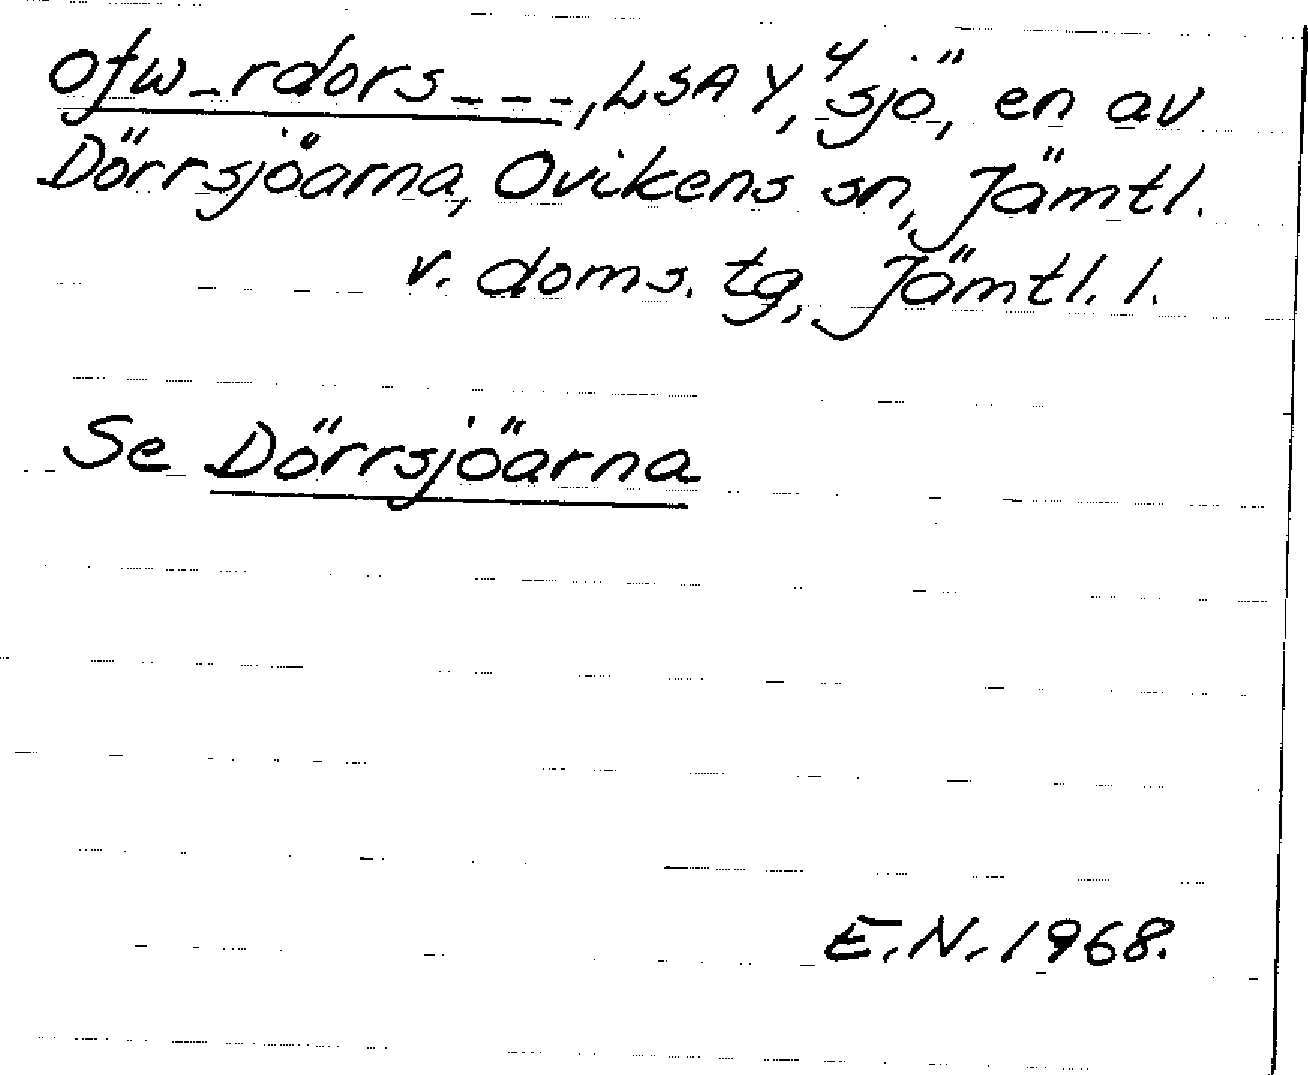 ofw_rdors _ _ _, LSA Y 4, sjö, en av
Dörrsjöarna, Ovikens sn, Jämtl.
v. doms. tg, Jämtl. l.
Se Dörrsjöarna
E. N. 1968.